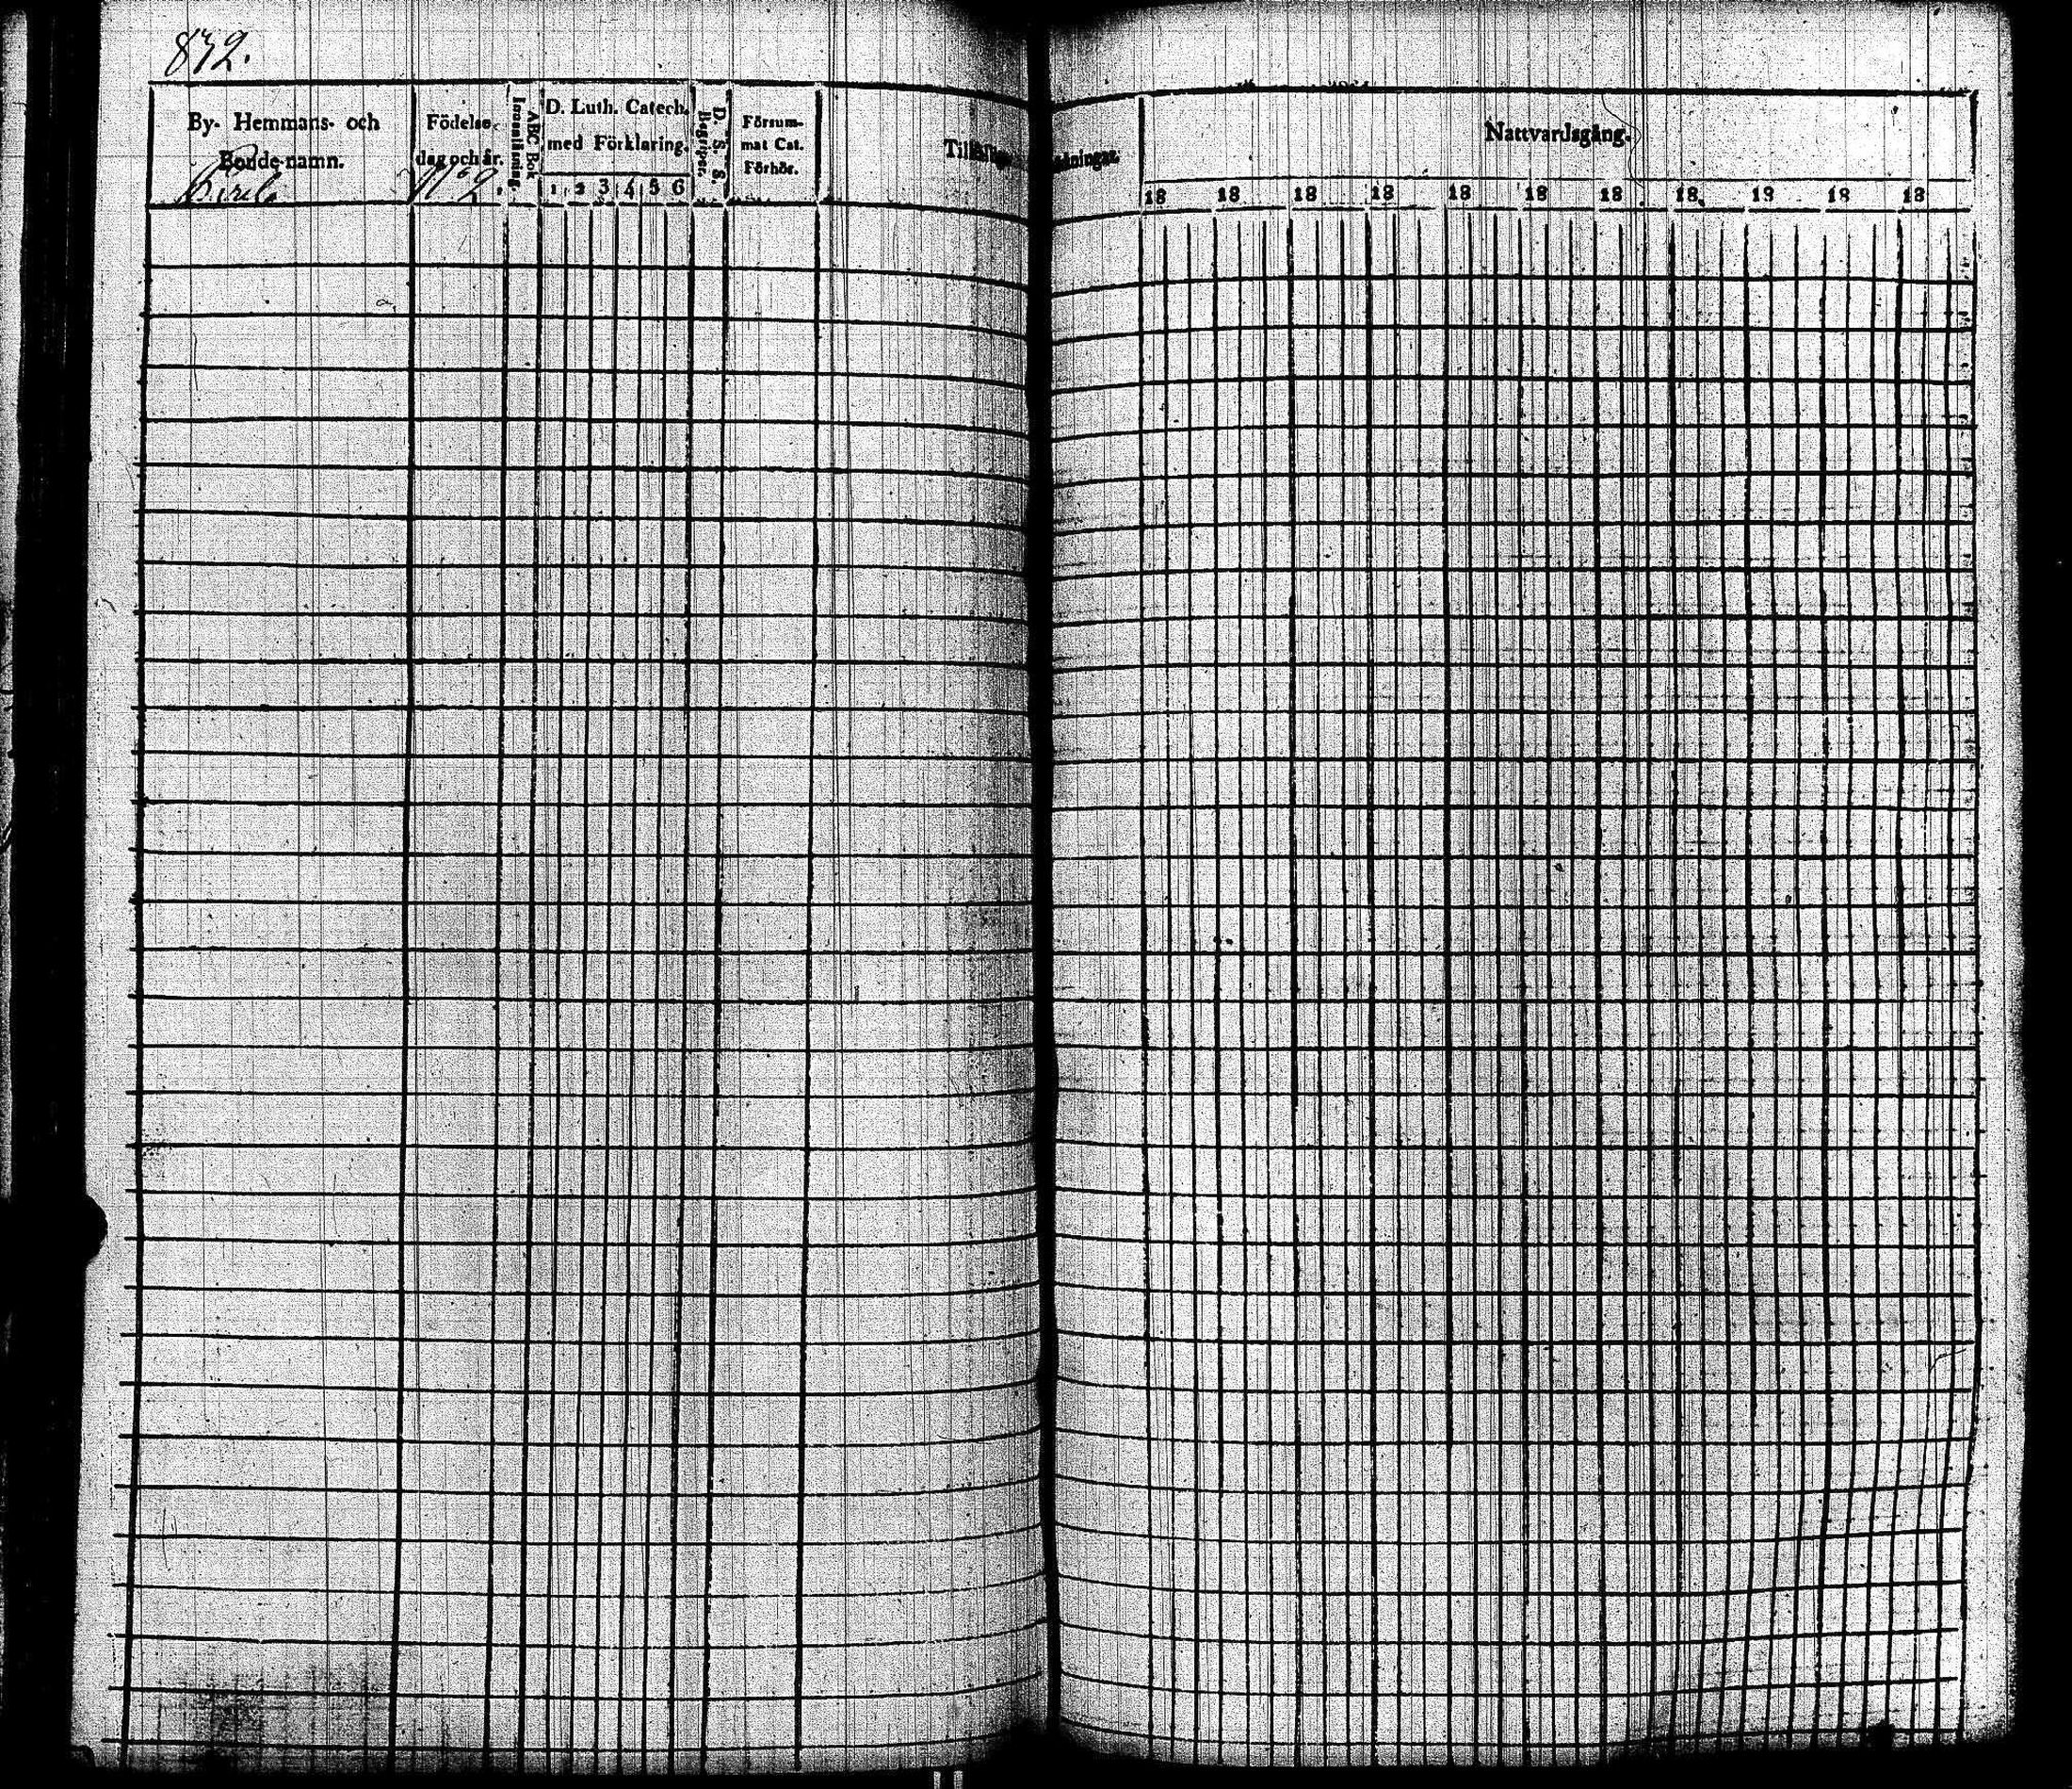 872.
By- Hemmans- och
Bonde-namn.
Födelse-
dag och år.
Innanläsning.
ABC Bok
D. Luth. Catech.
med Förklaring.
1 2 3 4 5 6
D. S. S.
Begriper.
Försum-
mat Cat.
Förhör.
Nattvardsgång.
18 18 18 18 18 18 18 18 18 18 18